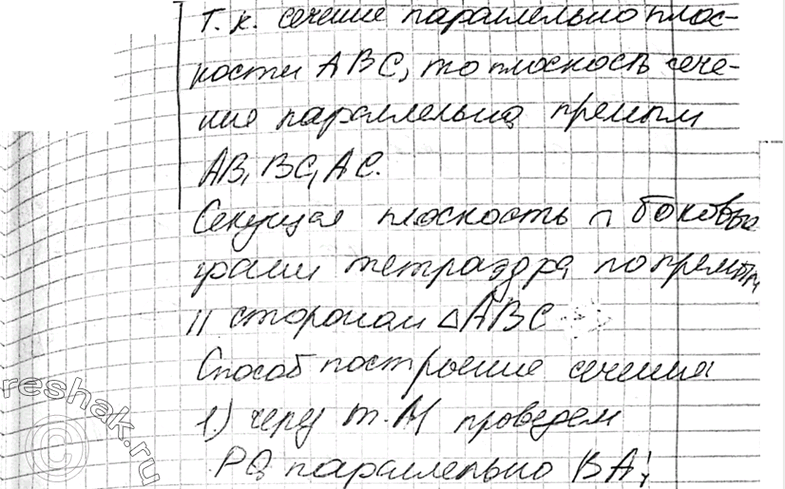 Т.к. сечение параллельно плос-
кости АВС, то плоскость сече-
ние параллельна прямым
АВ, ВС, АС.
Секущая плоскость ∩ боковые
грани тетраэдра по прямым,
|| сторонам △АВС
Способ построение сечения
1) через т. М проведем
PQ параллельно ВА;
reshak.ru